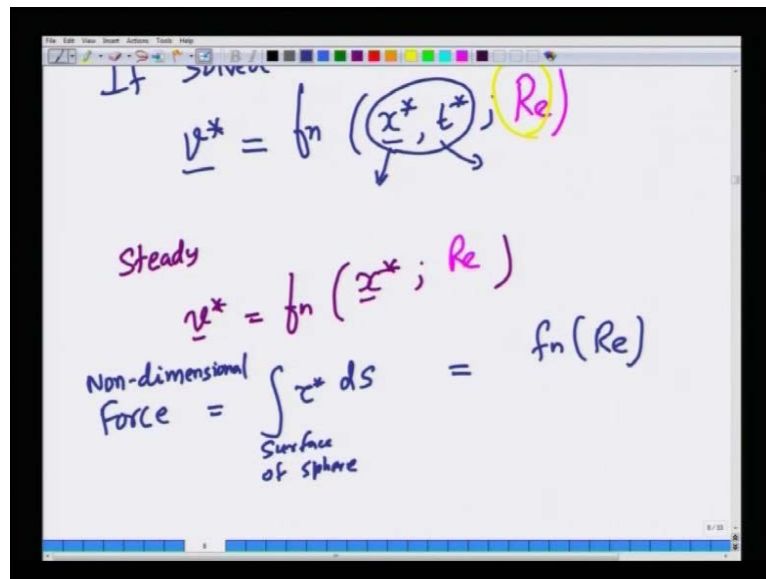 File Edit View Insert Actions Tools Help
If solved
v* = fn (x*, t* ; Re)
Steady
v* = fn (x* ; Re)
Non-dimensional
Force = ∫ τ* ds = fn (Re)
Surface
of sphere